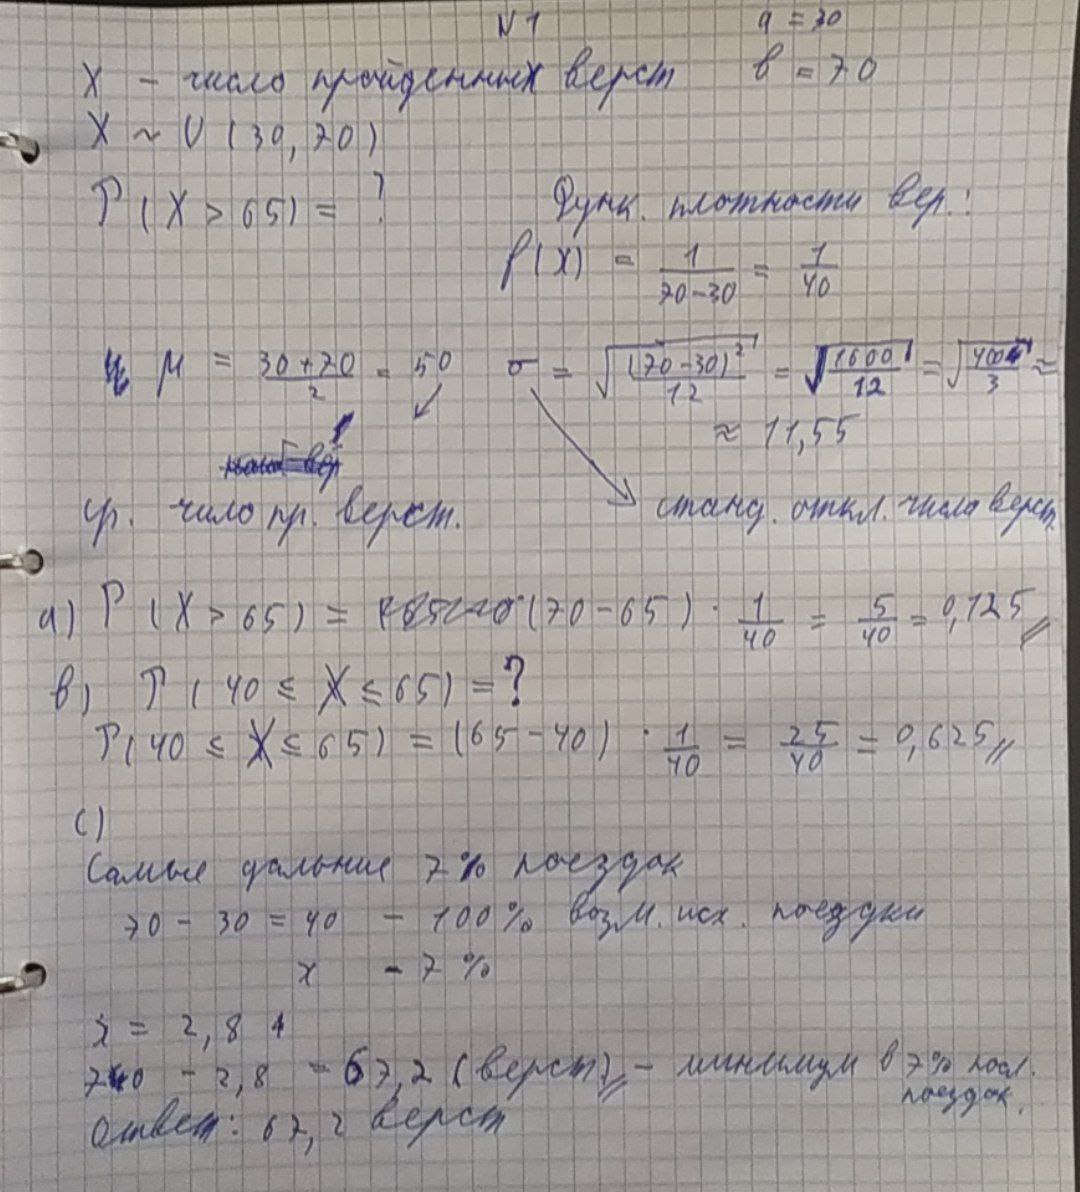 N 1 a = 30
X – число пройденных верст b = 70
X ~ U (30, 70)
P (X > 65) = ? Функ. плотности вер.:
f(X) = 1/(70-30) = 1/40
μ = (30+70)/2 = 50 σ = √((70-30)²/12) = √(1600/12) = √(400/3) ≈
≈ 11,55
ср. число пр. верст. станд. откл. числа верст.
a) P (X > 65) = (70-65) · 1/40 = 5/40 = 0,125
b) P (40 ≤ X ≤ 65) = ?
P(40 ≤ X ≤ 65) = (65-40) · 1/40 = 25/40 = 0,625
c)
Самые дальние 7% поездок
70 - 30 = 40 – 100% возм. исх. поездки
x – 7%
x = 2,8
70 - 2,8 = 67,2 (верст) – минимум в 7% посл.
поездок.
Ответ: 67,2 верст